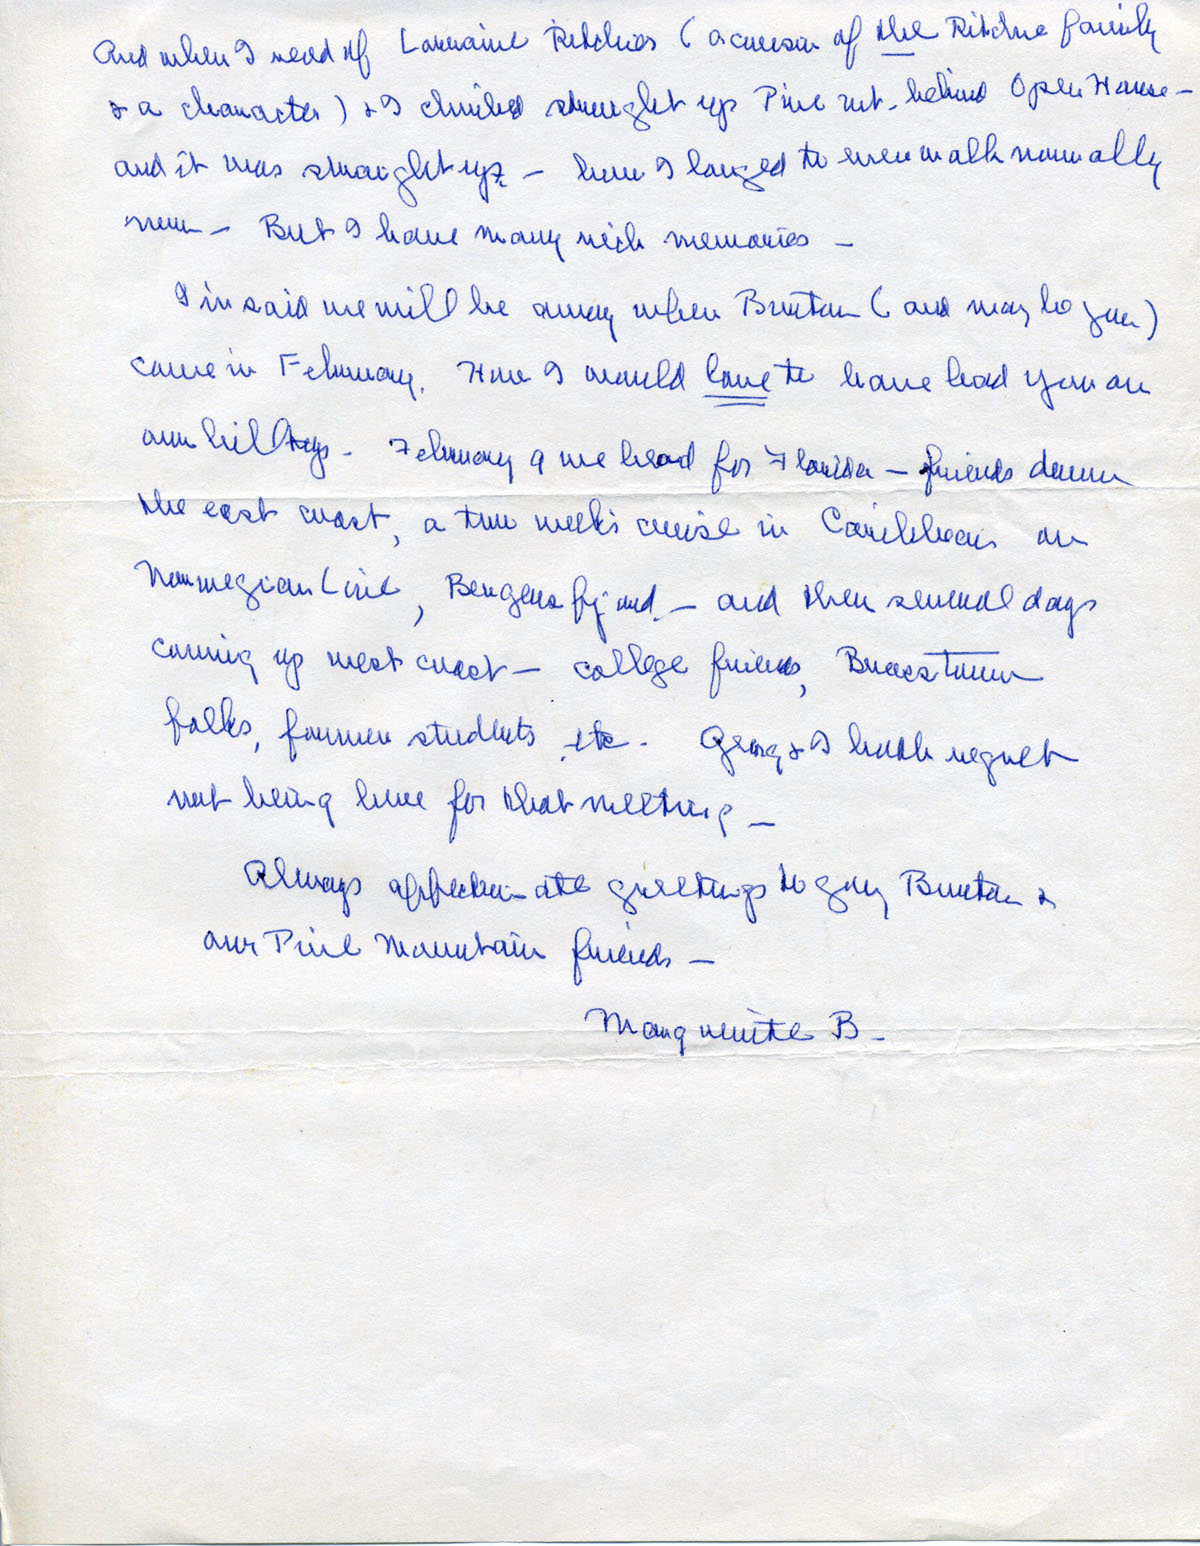 And when I read of Lorraine Ritchies (a cousin of the Ritchie family
& a character) & I climbed straight up Pine Mt. behind Open House –
and it was straight up – how I longed to even walk normally
now – But I have many rich memories –
I'm said we will be away when Burton (and maybe you)
come in February. How I would love to have had you on
our hilltop. February 9 we head for Florida – friends down
the east coast, a two weeks cruise in Caribbean on
Norwegian Line, Bergensfjord – and then several days
coming up west coast – college friends, Brasstown
folks, former students, etc. Georg & I both regret
not being here for that meeting –
Always affectionate greetings to you, Burton &
our Pine Mountain friends –
Marguerite B –